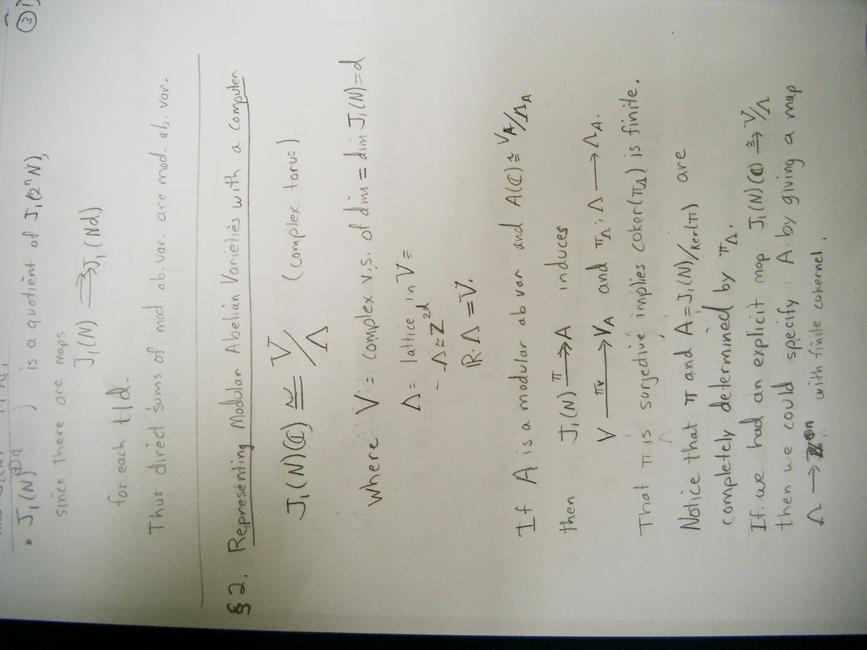 ③
• J₁(N)^{⊕n} } is a quotient of J₁(2ⁿN),
since there are maps
J₁(N) ⇉ J₁(Nd)
for each t|d.
Thus direct sums of mod. ab. var. are mod. ab. var.
§2. Representing Modular Abelian Varieties with a Computer
J₁(N)(ℂ) ≅ V/Λ (complex torus)
where V = complex v.s. of dim = dim J₁(N) = d
Λ = lattice in V =
- Λ ≈ ℤ^{2d}
ℝ·Λ = V.
If A is a modular ab var and A(ℂ) ≅ V_A/Λ_A
then J₁(N) —π→ A induces
V —π_V→ V_A and π_Λ: Λ → Λ_A.
That π is surjective implies coker(π_Λ) is finite.
Notice that π and A = J₁(N)/Ker(π) are
completely determined by π_Λ.
If we had an explicit map J₁(N)(ℂ) ⥲ V/Λ
then we could specify A by giving a map
Λ → ℤ^{⊕n} with finite cokernel.